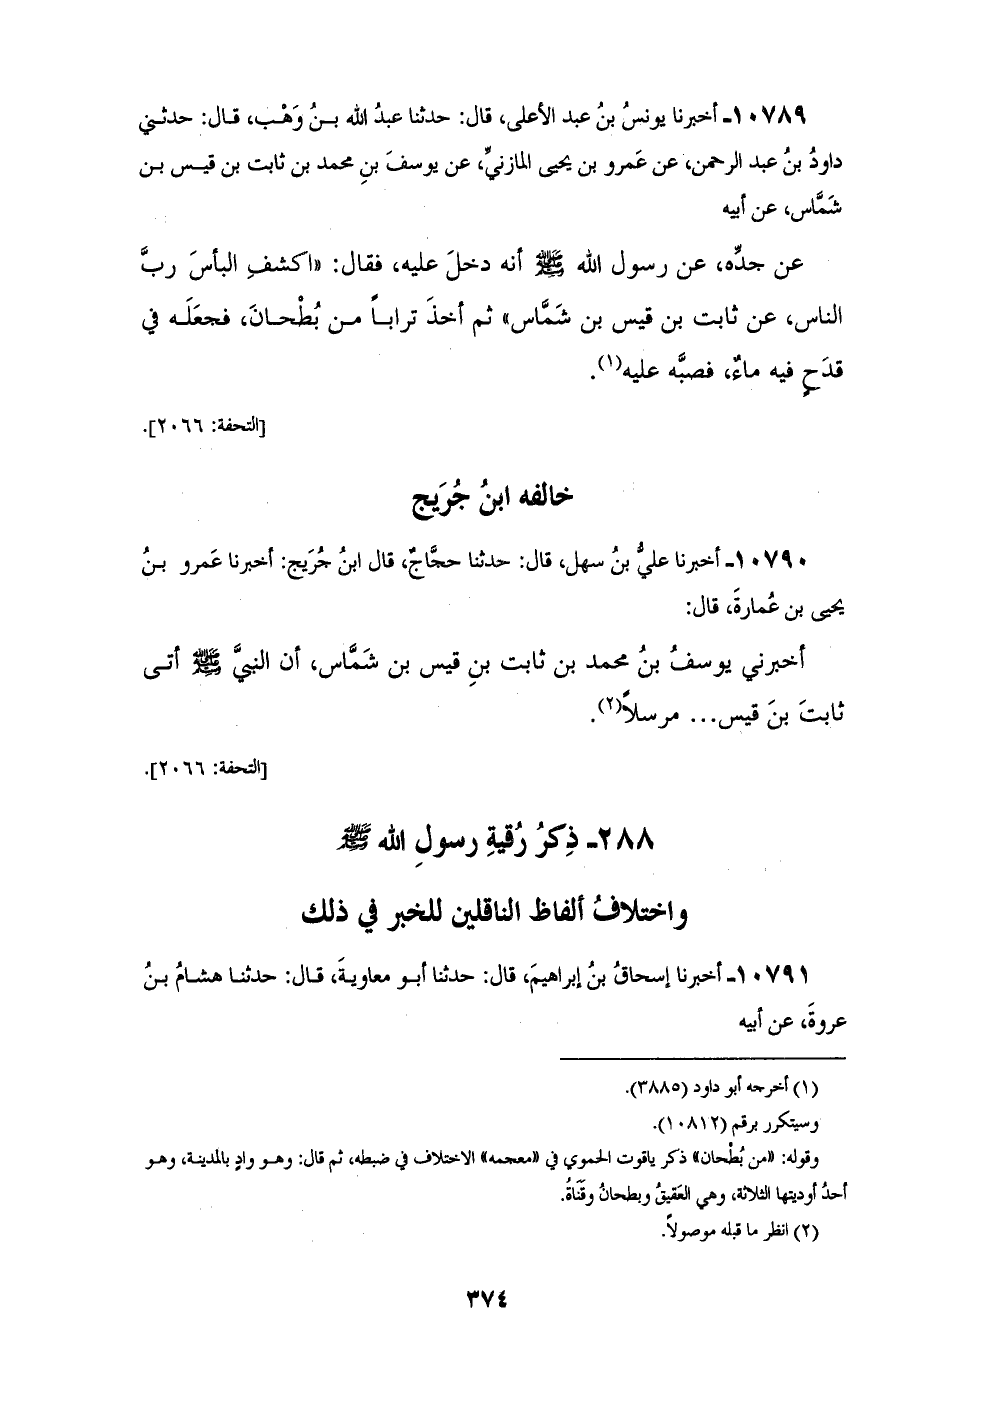 ١٠٧٨٩ـ أخبرنا يونسُ بنُ عبد الأعلى، قال: حدثنا عبدُ الله بـنُ وَهْـب، قـال: حدثـني
داودُ بنُ عبد الرحمن، عن عَمرو بن يحيى المازنيِّ، عن يوسفَ بنِ محمد بن ثابت بن قيـس بـن
شَمَّاس، عن أبيه
عن جدِّه، عن رسول الله ﷺ أنه دخلَ عليه، فقال: «اكشفِ البأسَ ربَّ
الناس، عن ثابت بن قيس بن شَمَّاس» ثم أخذَ ترابـاً مـن بُطْحـانَ، فجعَلَـه في
قدَحٍ فيه ماءٌ، فصبَّه عليه(١).
[التحفة: ٢٠٦٦].
خالفه ابنُ جُرَيج
١٠٧٩٠ـ أخبرنا عليُّ بنُ سهل، قال: حدثنا حجَّاجٌ، قال ابنُ جُرَيج: أخبرنا عَمرو بـنُ
يحيى بن عُمارةَ، قال:
أخبرني يوسفُ بنُ محمد بن ثابت بنِ قيس بن شَمَّاس، أن النبيَّ ﷺ أتـى
ثابتَ بنَ قيس... مرسلاً(٢).
[التحفة: ٢٠٦٦].
٢٨٨ـ ذِكرُ رُقيةِ رسولِ الله ﷺ
واختلافُ ألفاظ الناقلين للخبر في ذلك
١٠٧٩١ـ أخبرنا إسحاقُ بنُ إبراهيمَ، قال: حدثنا أبـو معاويـةَ، قـال: حدثنـا هشـامُ بـنُ
عروةَ، عن أبيه
(١) أخرجه أبو داود (٣٨٨٥).
وسيتكرر برقم (١٠٨١٢).
وقوله: «من بُطْحان» ذكر ياقوت الحموي في «معجمه» الاختلاف في ضبطه، ثم قال: وهـو وادٍ بالمدينة، وهـو
أحدُ أوديتها الثلاثة، وهي العَقيقُ وبطحانُ وقَنَاةُ.
(٢) انظر ما قبله موصولاً.
٣٧٤